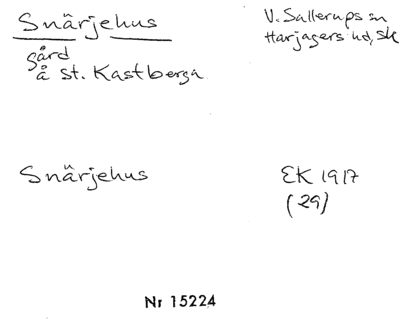 Snärjehus
V. Sallerups sn
Harjagers hd, Sk
gård
å St. Kastberga
Snärjehus
EK 1917
(29)
Nr 15224